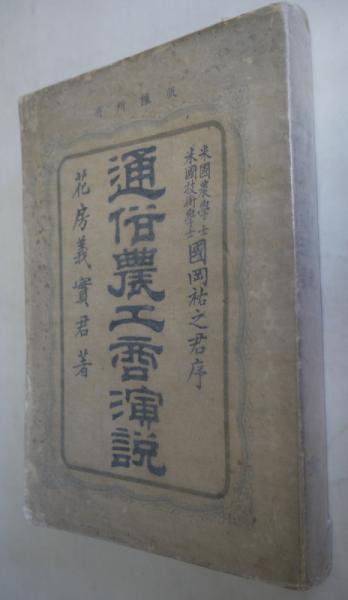 版權所有
米國農學士
米國技術學士
國岡祐之君序
通俗農工商演説
花房義實君著